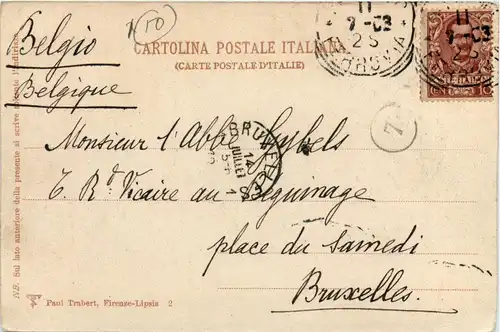 1(50)
Belgio
Belgique
CARTOLINA POSTALE ITALIANA
(CARTE POSTALE D'ITALIE)
11
7-03
2 S
FERROVIA
11
7-03
7
BRUXELLES
14
JUILLET
Monsieur l'Abbé Gybels
T. Rd Vicaire au Béguinage
place du Samedi
Bruxelles.
NB. Sul lato anteriore della presente si scrive
Paul Trabert, Firenze-Lipsia 2